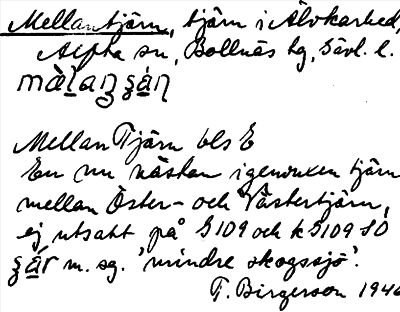 Mellantjärn, tjärn i Älvkarhed,
Alfta sn, Bollnäs tg, Gävl. l.
Mellan Tjärn bls E
En nu nästan igenvuxen tjärn
mellan Öster- och Västertjärn,
ej utsatt på G109 och k G109 SO
m. sg. 'mindre skogssjö'.
T. Birgerson 1946